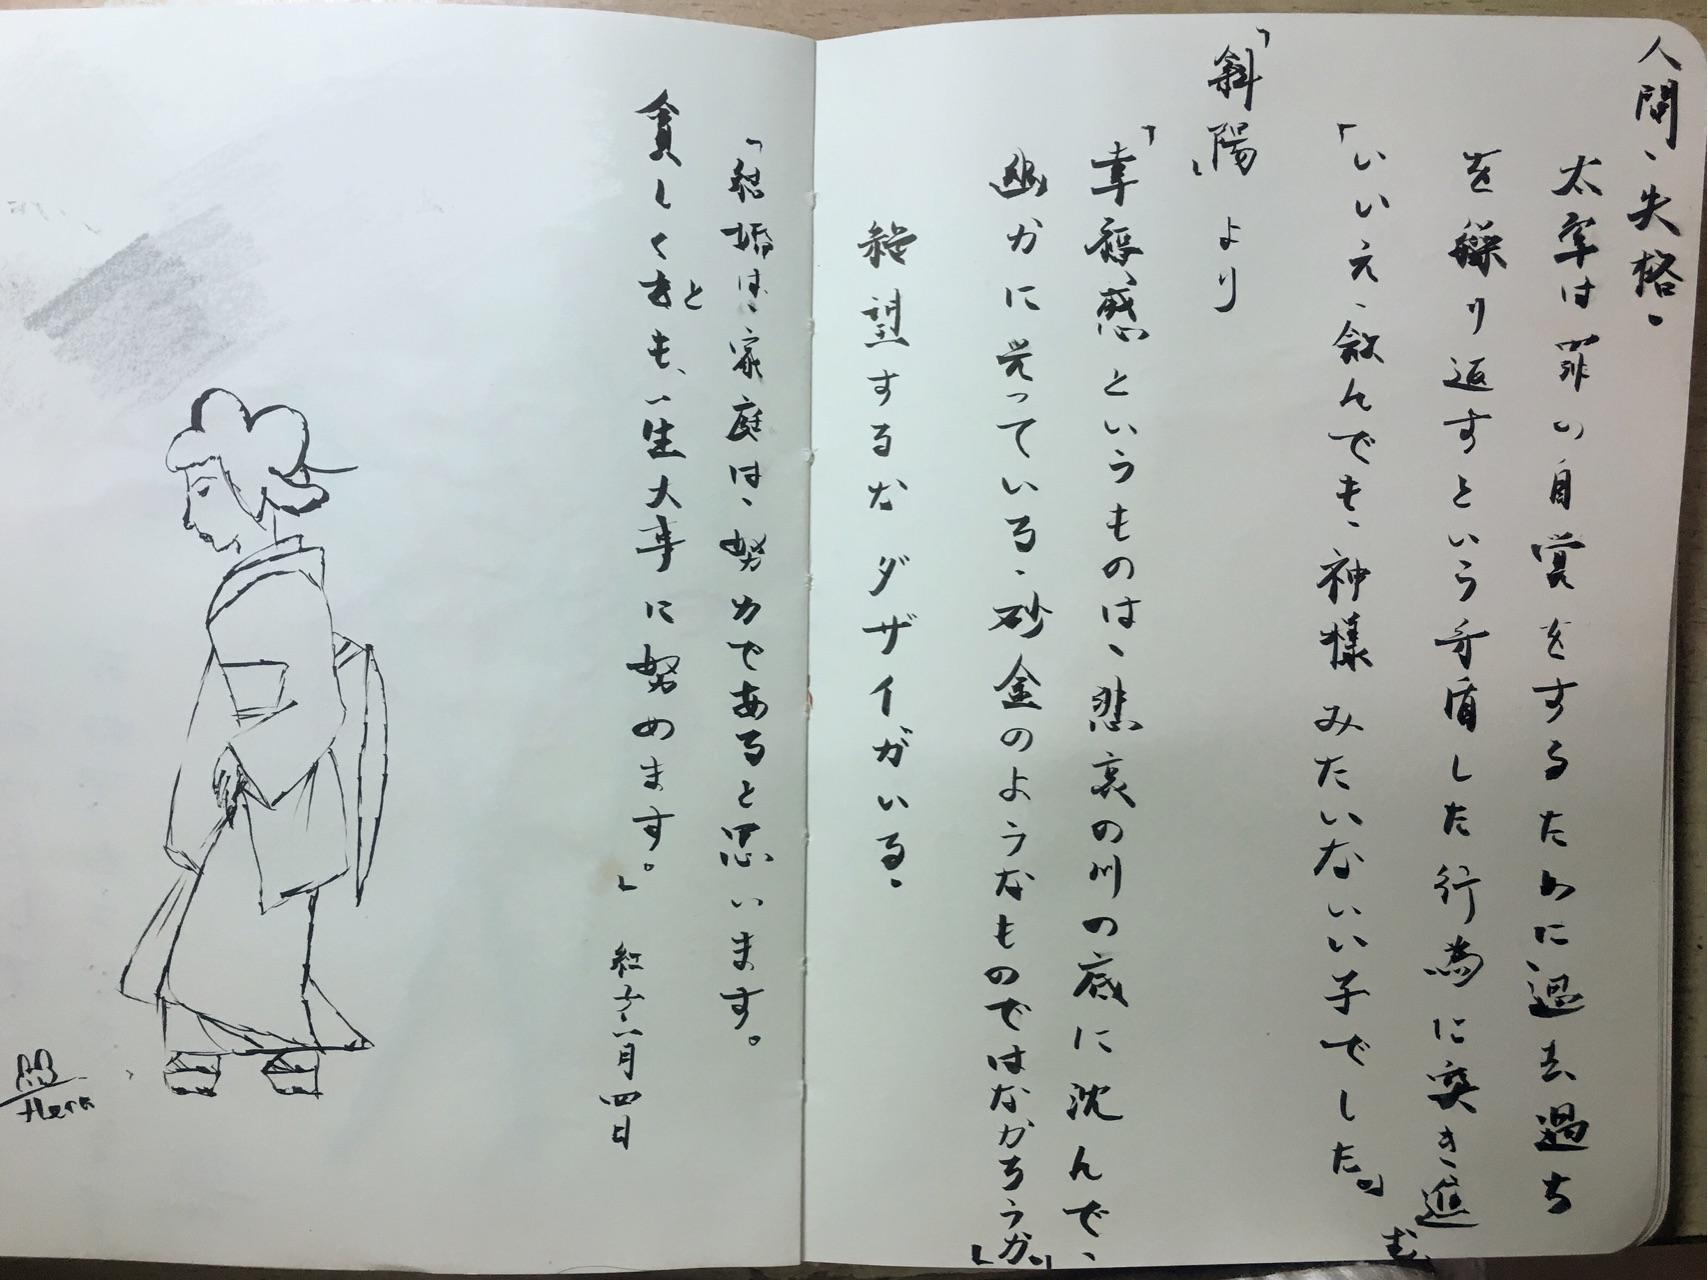 人間、失格、
太宰は罪の自賞をするために過去過ち
を繰り返すという矛盾した行為に突き進
む
「いいえ、飲んでも、神様みたいないい子でした。」
「斜陽」より
「幸福感というものは、悲哀の川の底に沈んで、
幽かに光っている、砂金のようなものではなかろうか。」
絶望するなダザイがいる、
「結婚は、家庭は、努力であると思います。
貧しくとも、一生大事に努めます。」
月四日
Hera